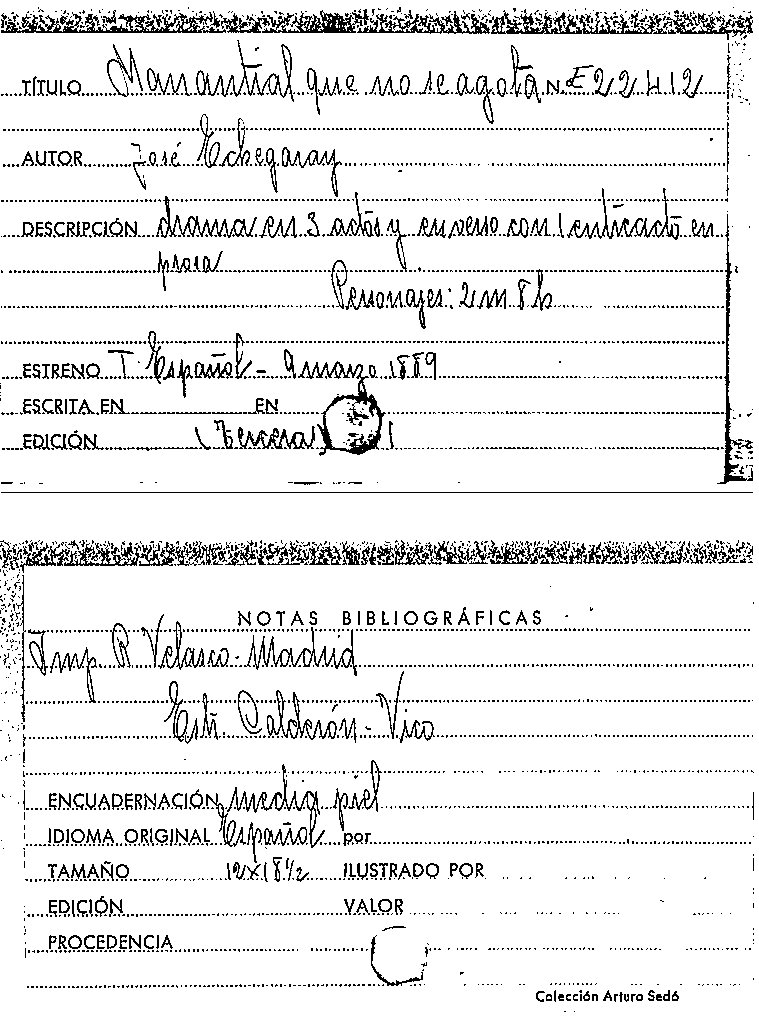 TÍTULO Manantial que no se agota N. E 22412
AUTOR José Echegaray
DESCRIPCIÓN drama en 3 actos y en verso con 1 entreacto en
prosa
Personajes: 2 m 8 h
ESTRENO T. Español - 9 marzo 1889
ESCRITA EN EN
EDICIÓN (Tercera)
NOTAS BIBLIOGRÁFICAS
Imp. R Velasco - Madrid
Estr. Calderón - Vico
ENCUADERNACIÓN media piel
IDIOMA ORIGINAL Español por
TAMAÑO 12x18½ ILUSTRADO POR
EDICIÓN VALOR
PROCEDENCIA
Colección Arturo Sedó